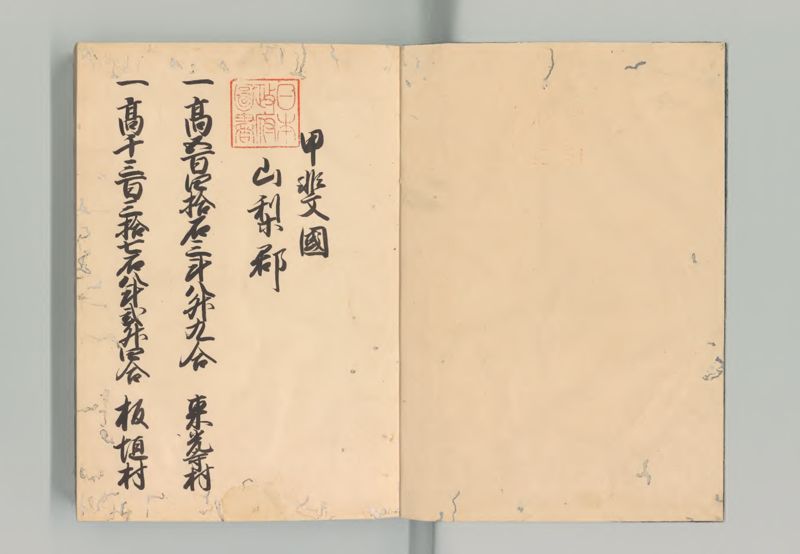 甲斐國
山梨郡
日本
政府
圖書
一高五百四拾石三斗八升九合 東光寺村
一高千三百三拾七石八斗弐升四合 板垣村